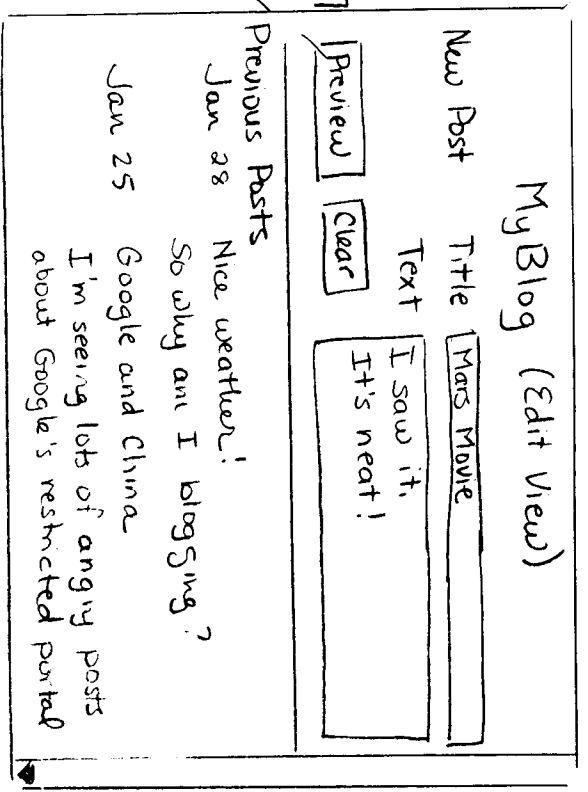 MyBlog (Edit View)
New Post Title Mars Movie
Text I saw it.
It's neat!
Preview Clear
Previous Posts
Jan 28 Nice weather!
So why am I blogging?
Jan 25 Google and China
I'm seeing lots of angry posts
about Google's restricted portal